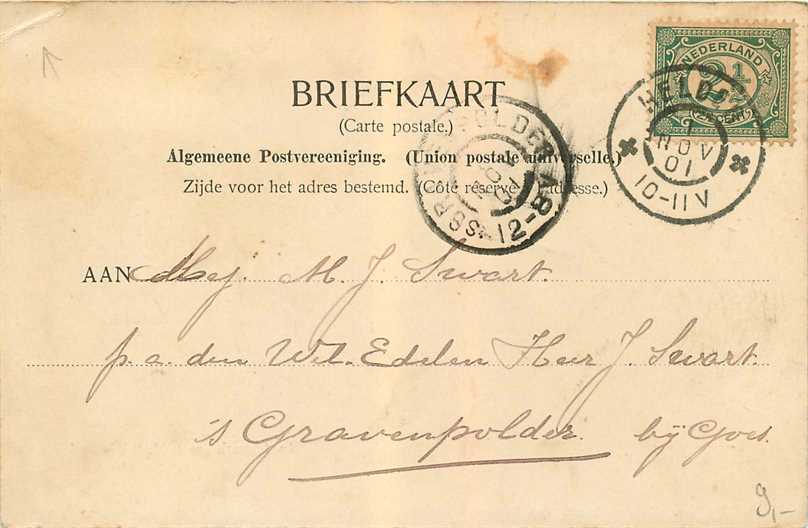 NEDERLAND
2½
CENT
HELD
1
NOV
01
10-11V
BRIEFKAART
(Carte postale.)
Algemeene Postvereeniging. (Union postale universelle.)
Zijde voor het adres bestemd. (Côté réservé à l'adresse.)
POLDER
12-8
AAN Mej. M. J. Swart.
p. a. den Wel. Edelen Heer J. Swart.
's Gravenpolder. bij Goes.
9,-